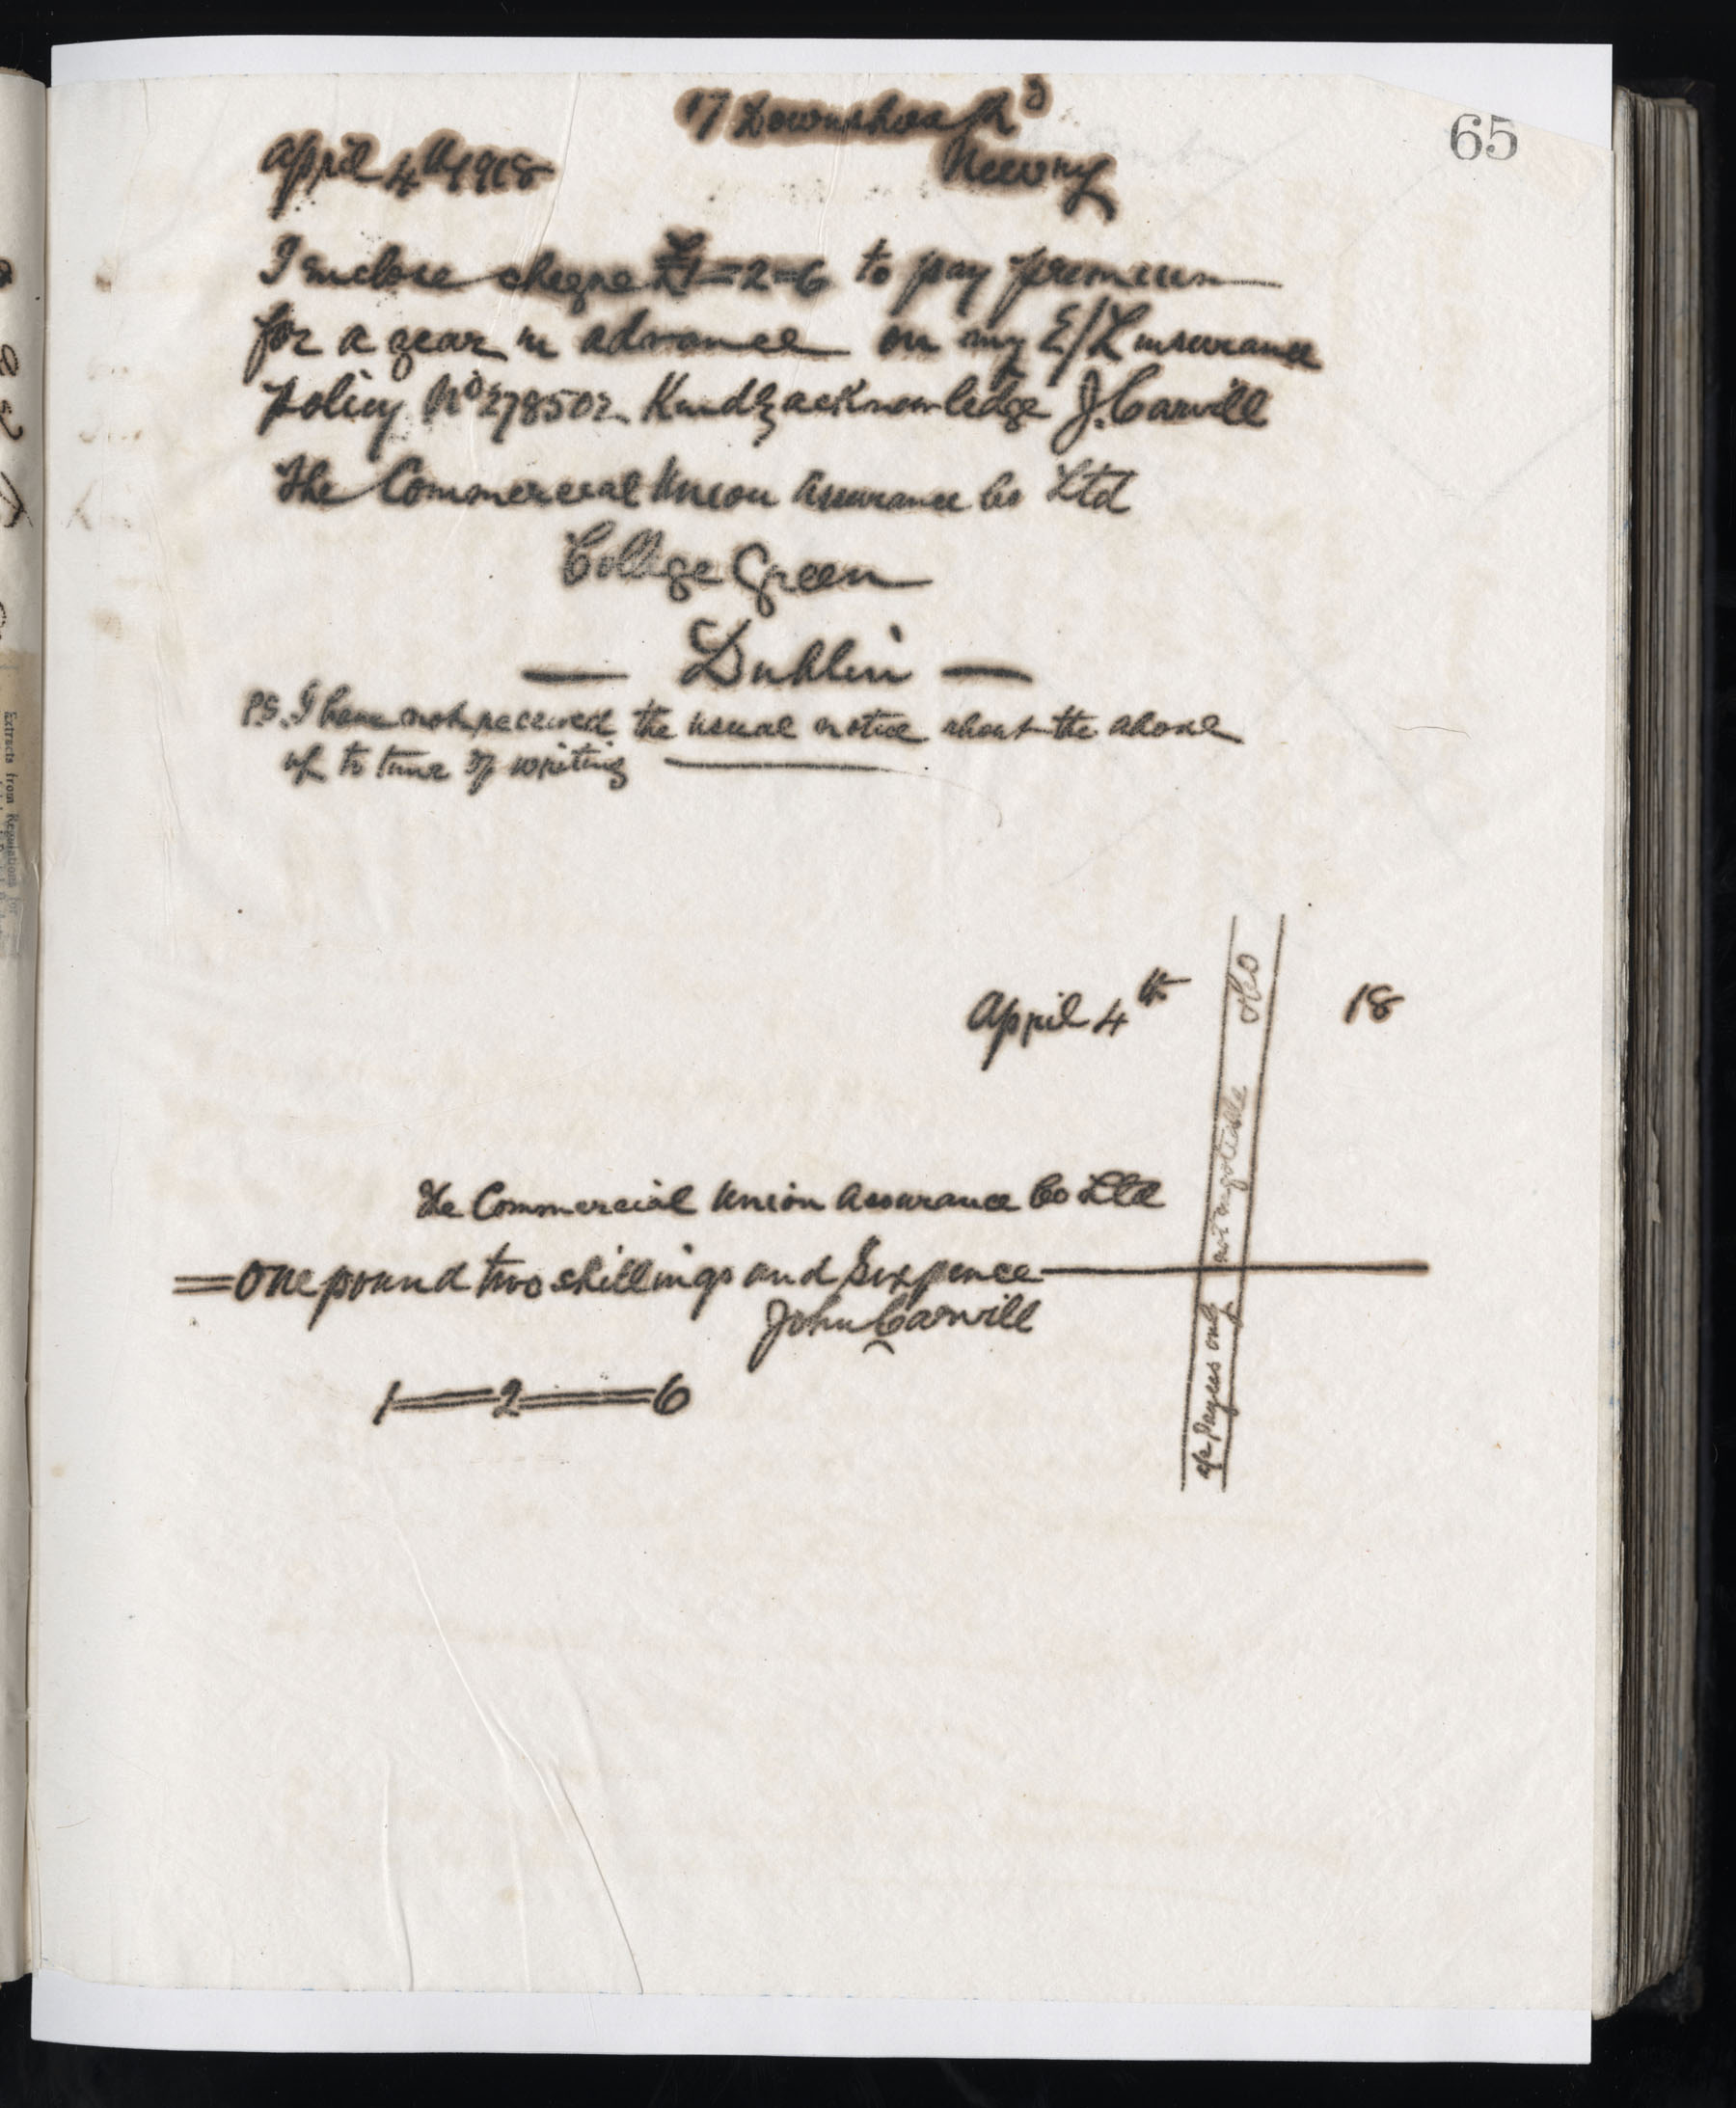 65
17 Downshire Rd
April 4th 1918 Newry
I enclose cheque £1=2=6 to pay premium
for a year in advance on my E/L insurance
policy No 278502 Kindly acknowledge J. Carvill
The Commercial Union Assurance Co Ltd
College Green
— Dublin —
P.S. I have not received the usual notice about the above
up to time of writing
April 4th 18
The Commercial Union Assurance Co Ltd
= One pound two shillings and Sixpence
John Carvill
1=2=6
a/c Payees only not negotiable &Co
Extracts from Regulations for